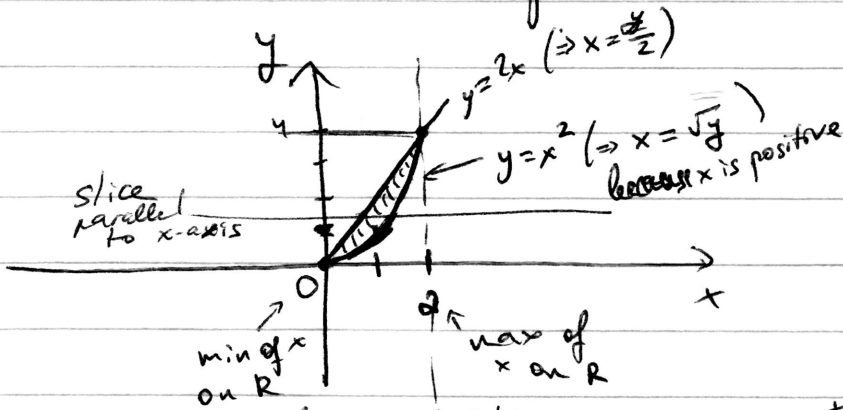 y
y=2x (⇒ x = y/2)
4
y = x² (⇒ x = √y)
because x is positive
slice
parallel
to x-axis
0
1
2
x
min of x
on R
max of
x on R